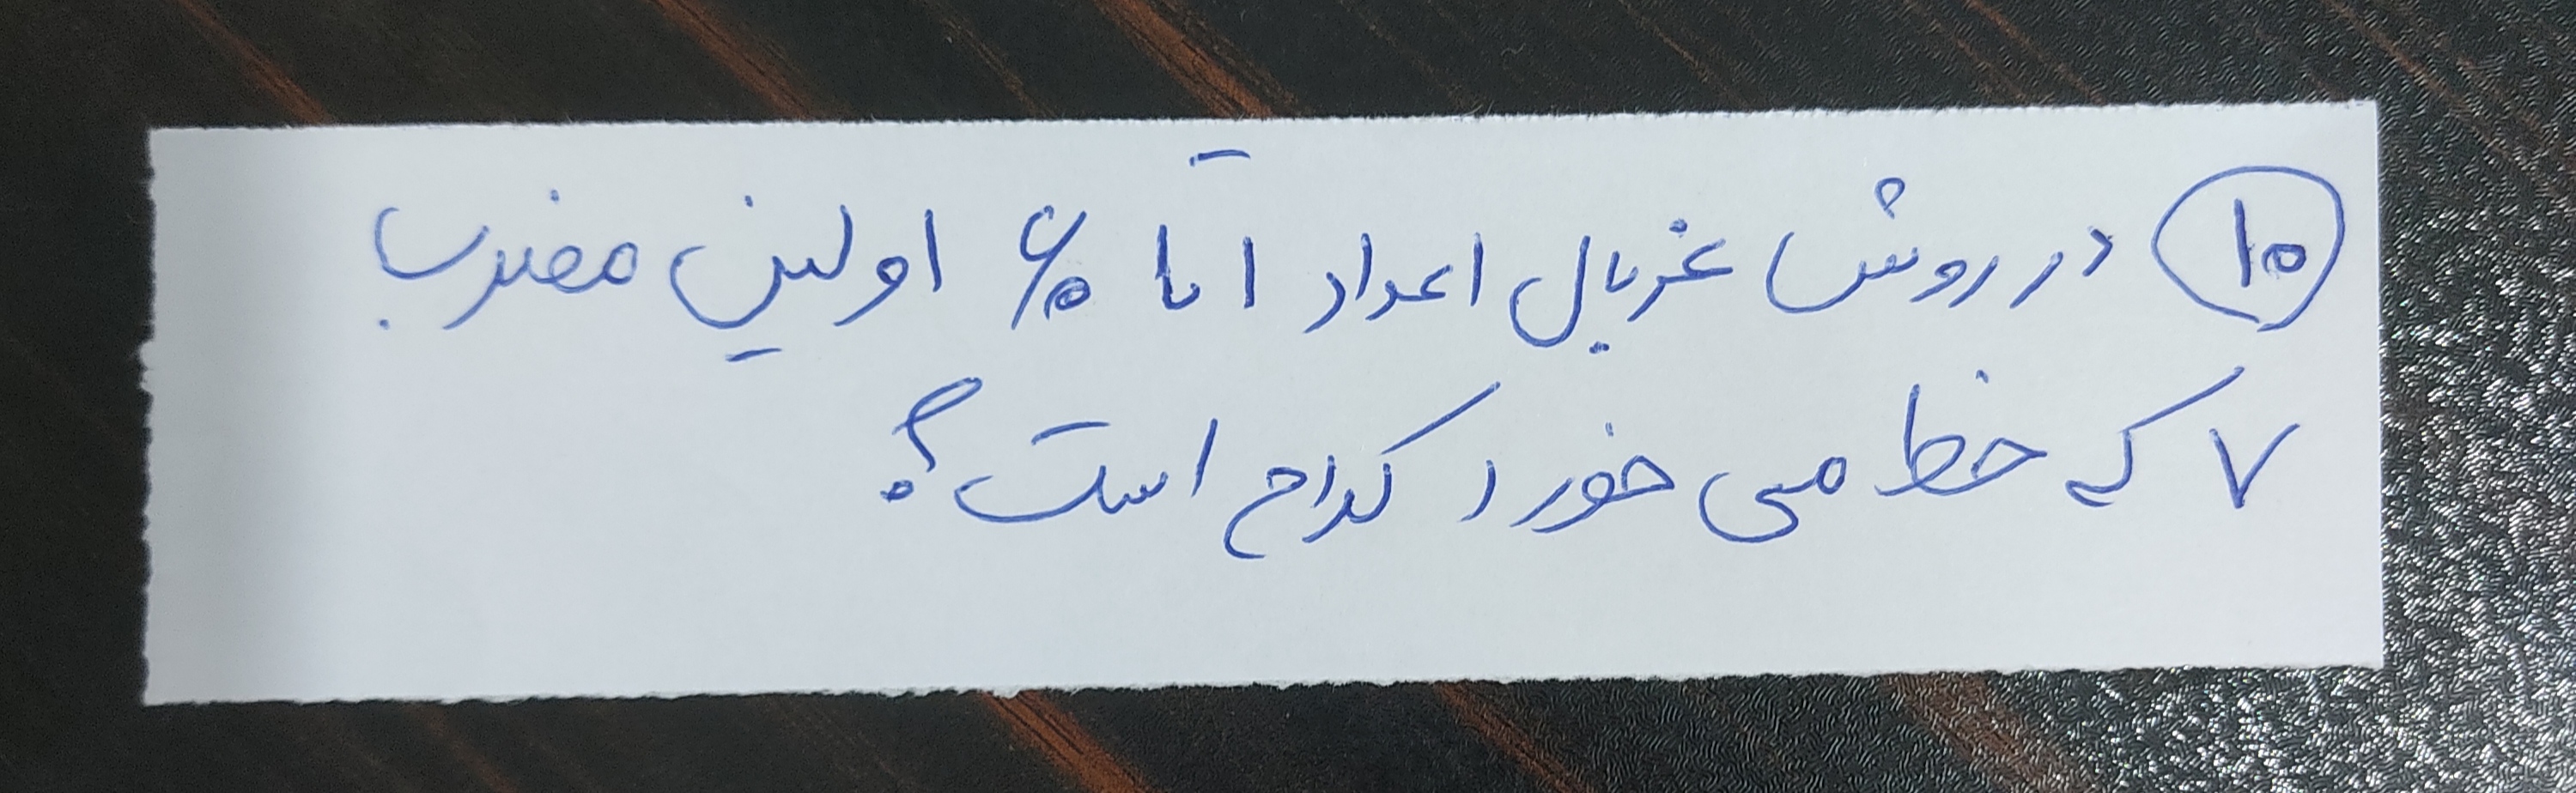 ۱۰ در روش غربال اعداد ۱ تا ۶۰ اولین مضرب
۷ که خط می خورد کدام است؟